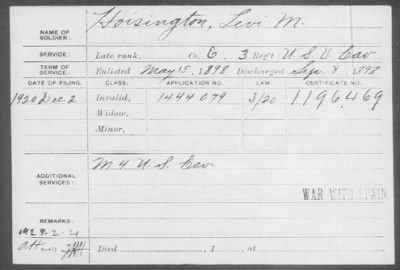 NAME OF SOLDIER: Hoisington, Levi M.
SERVICE: Late rank, Co. E. 3 Reg't U. S. V. Cav
TERM OF SERVICE: Enlisted May 15, 1898 Discharged Sept. 8 1898
DATE OF FILING. CLASS. APPLICATION NO. LAW. CERTIFICATE NO.
1920 Dec. 2 Invalid, 1444079 J/20 1196469
Widow,
Minor,
ADDITIONAL SERVICES: M 4 U. S. Cav
WAR WITH SPAIN
REMARKS:
9-2-21
Died , 1 , at